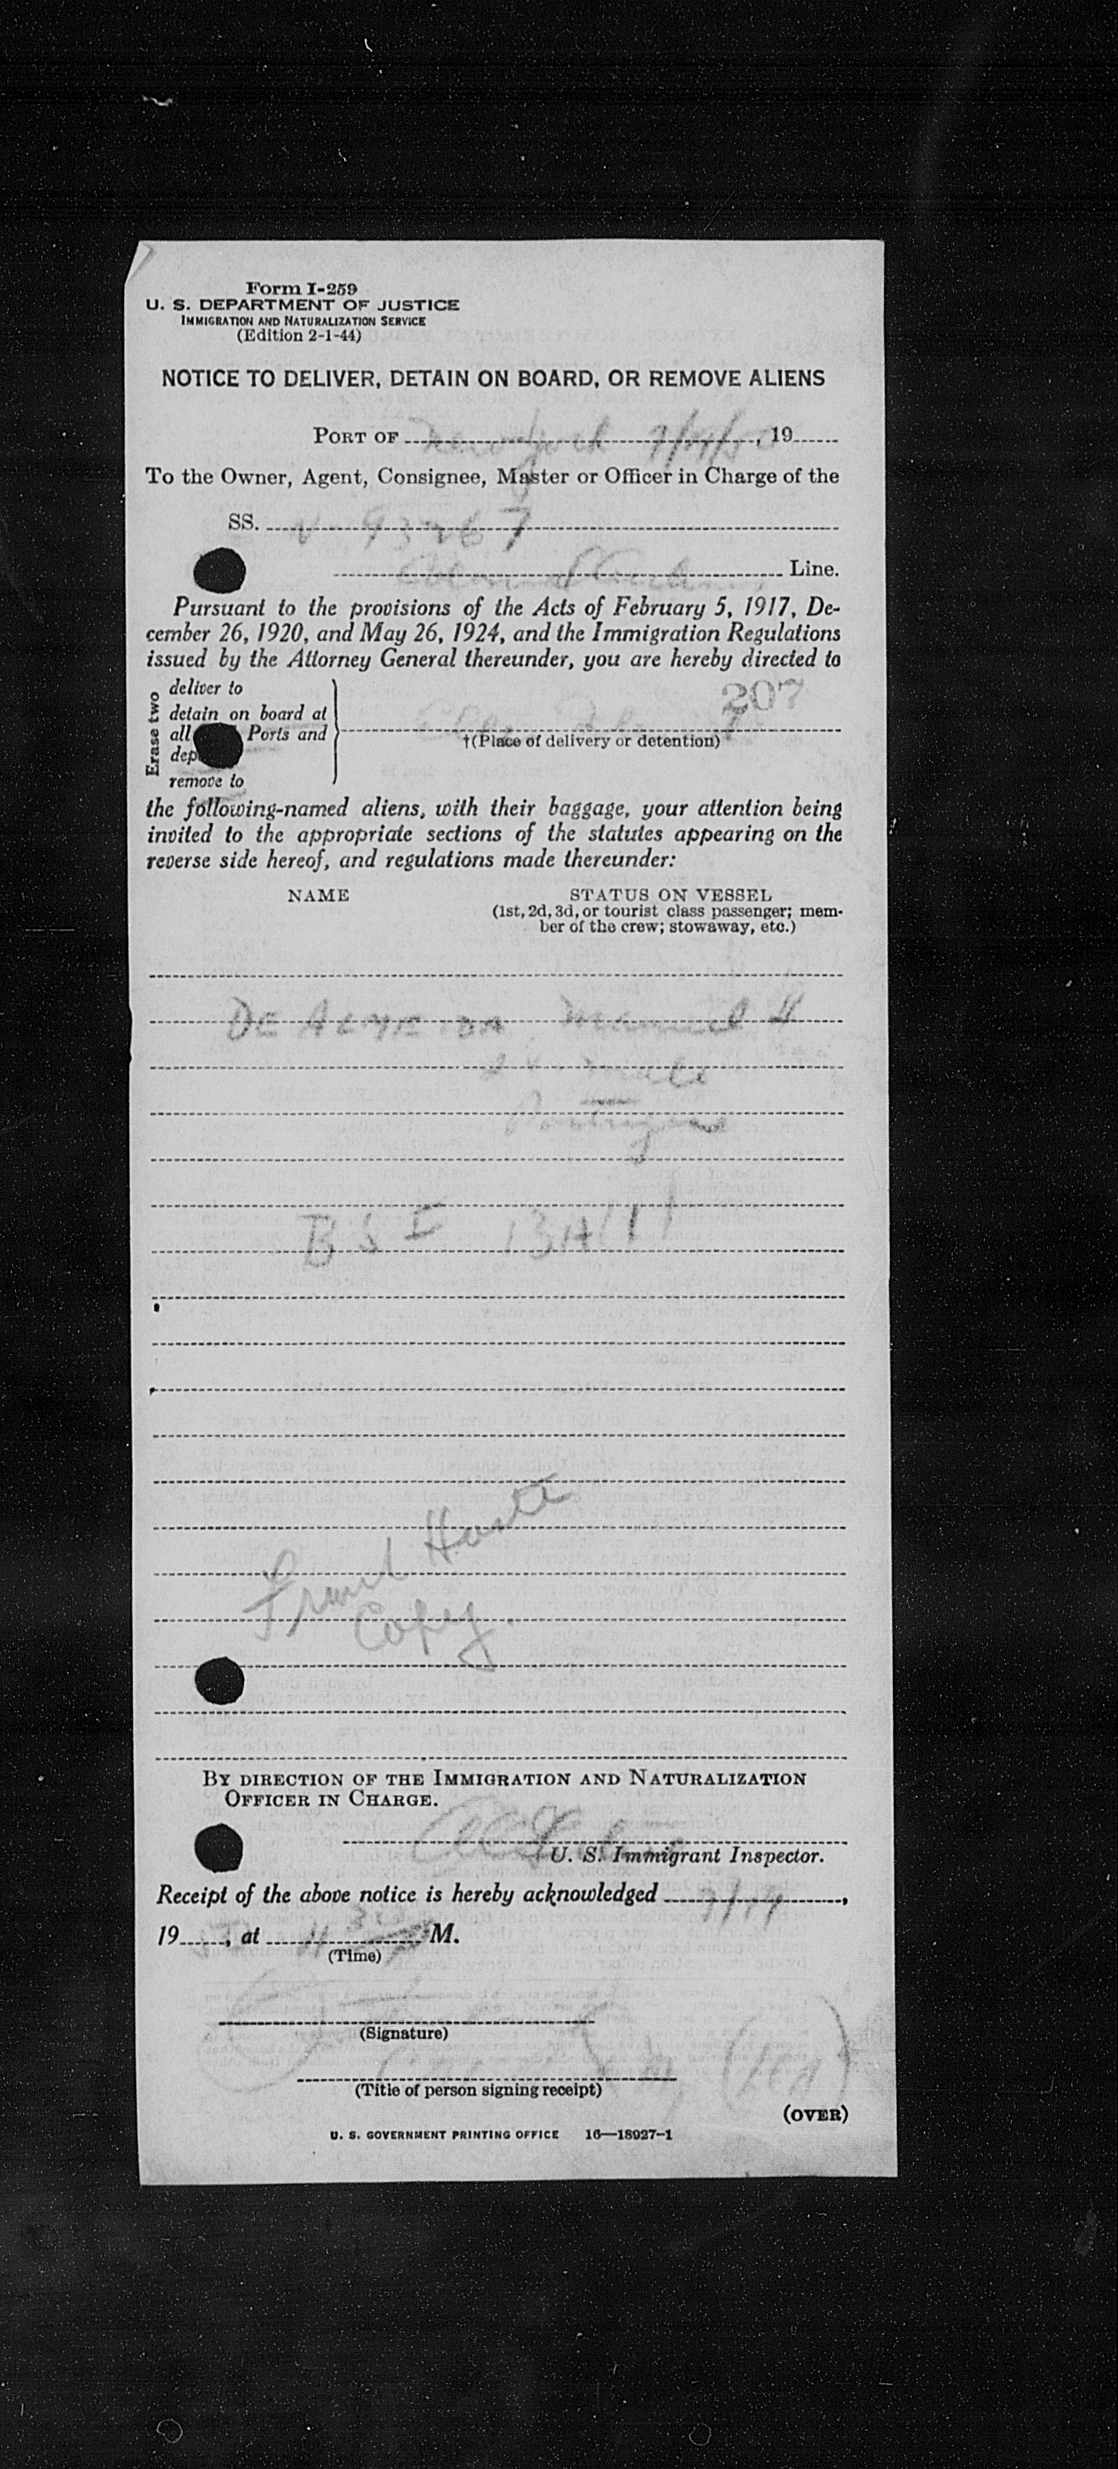 Form I-259
U. S. DEPARTMENT OF JUSTICE
IMMIGRATION AND NATURALIZATION SERVICE
(Edition 2-1-44)
NOTICE TO DELIVER, DETAIN ON BOARD, OR REMOVE ALIENS
PORT OF New York , 19
To the Owner, Agent, Consignee, Master or Officer in Charge of the
SS. N-93267
Line.
Pursuant to the provisions of the Acts of February 5, 1917, De-
cember 26, 1920, and May 26, 1924, and the Immigration Regulations
issued by the Attorney General thereunder, you are hereby directed to
207
Erase two
deliver to
detain on board at
all Ports and
dep
remove to
†(Place of delivery or detention)
the following-named aliens, with their baggage, your attention being
invited to the appropriate sections of the statutes appearing on the
reverse side hereof, and regulations made thereunder:
NAME STATUS ON VESSEL
(1st, 2d, 3d, or tourist class passenger; mem-
ber of the crew; stowaway, etc.)
DE ALMEIDA Manuel H
male
Portuguese
BSI
Copy.
BY DIRECTION OF THE IMMIGRATION AND NATURALIZATION
OFFICER IN CHARGE.
U. S. Immigrant Inspector.
Receipt of the above notice is hereby acknowledged ,
19 , at M.
(Time)
(Signature)
(Title of person signing receipt)
(OVER)
U. S. GOVERNMENT PRINTING OFFICE 16—18927-1